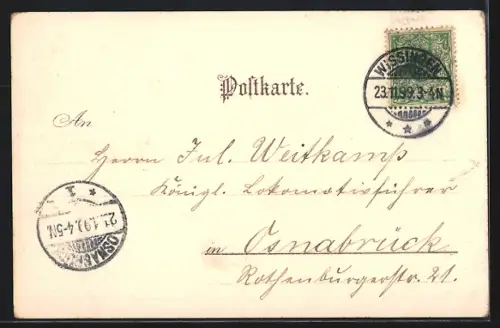 Postkarte.
WISSINGEN
23.11.99.3-4N
* * *
An
Herrn Jul. Weitkamp
Königl. Lokomotivführer
in Osnabrück
Rothenburgerstr. 21.
* 1 *
4-5N